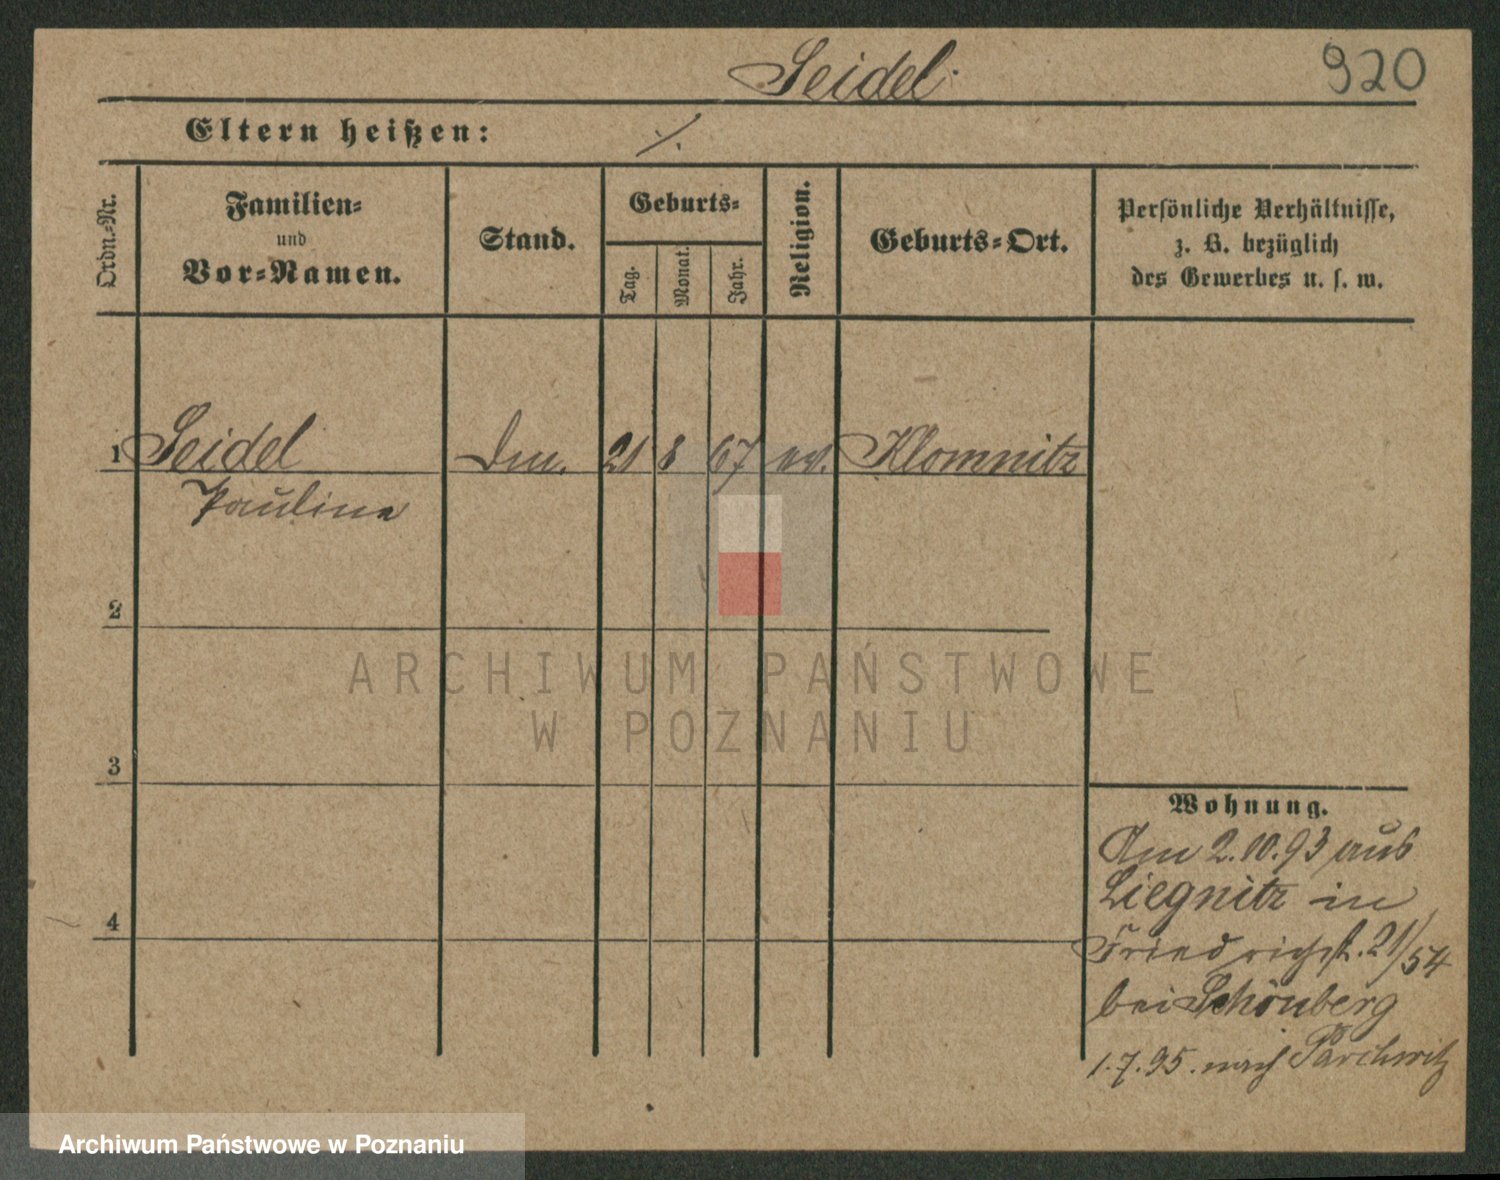 Seidel.
920
Eltern heißen: ./.
Ordn.-Nr.
Familien-
und
Vor-Namen.
Stand.
Geburts-
Tag.
Monat.
Jahr.
Religion.
Geburts-Ort.
Persönliche Verhältnisse,
z. B. bezüglich
des Gewerbes u. s. w.
1 Seidel 21 8 67 ev. Klomnitz
Pauline
2
3
4
ARCHIWUM PAŃSTWOWE
W POZNANIU
Wohnung.
Am 2.10.93 aus
Liegnitz in
Friedrichst. 21/54
bei Schönberg
1.7.95. nach Parchwitz
Archiwum Państwowe w Poznaniu